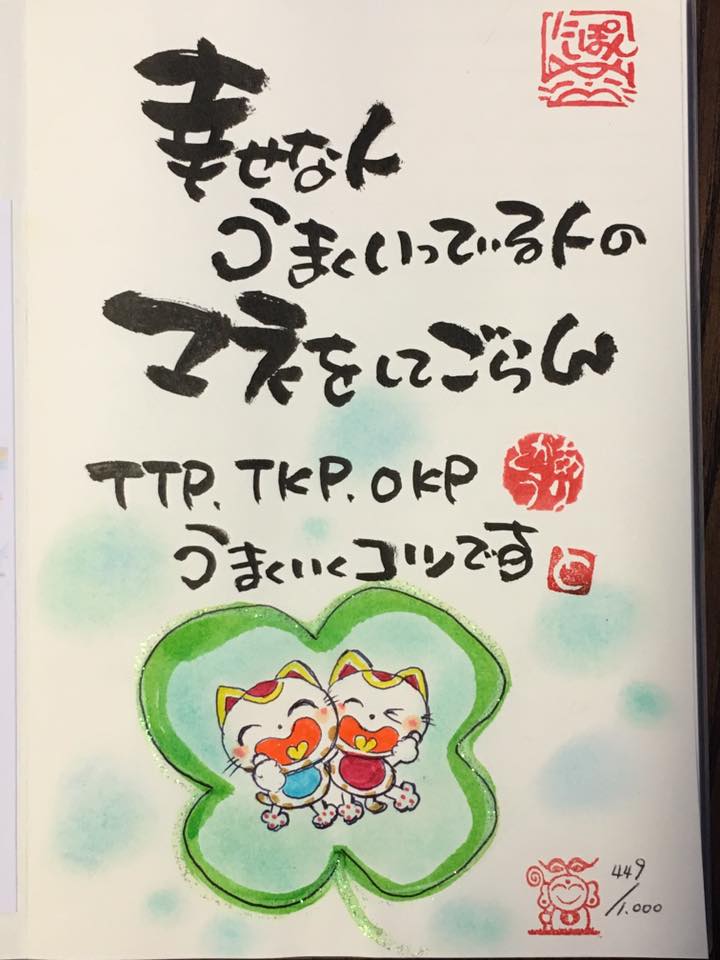 にしぽん
幸せな人
うまくいっている人の
マネをしてごらん
TTP. TKP. OKP
うまくいくコツです
と
449
/1.000